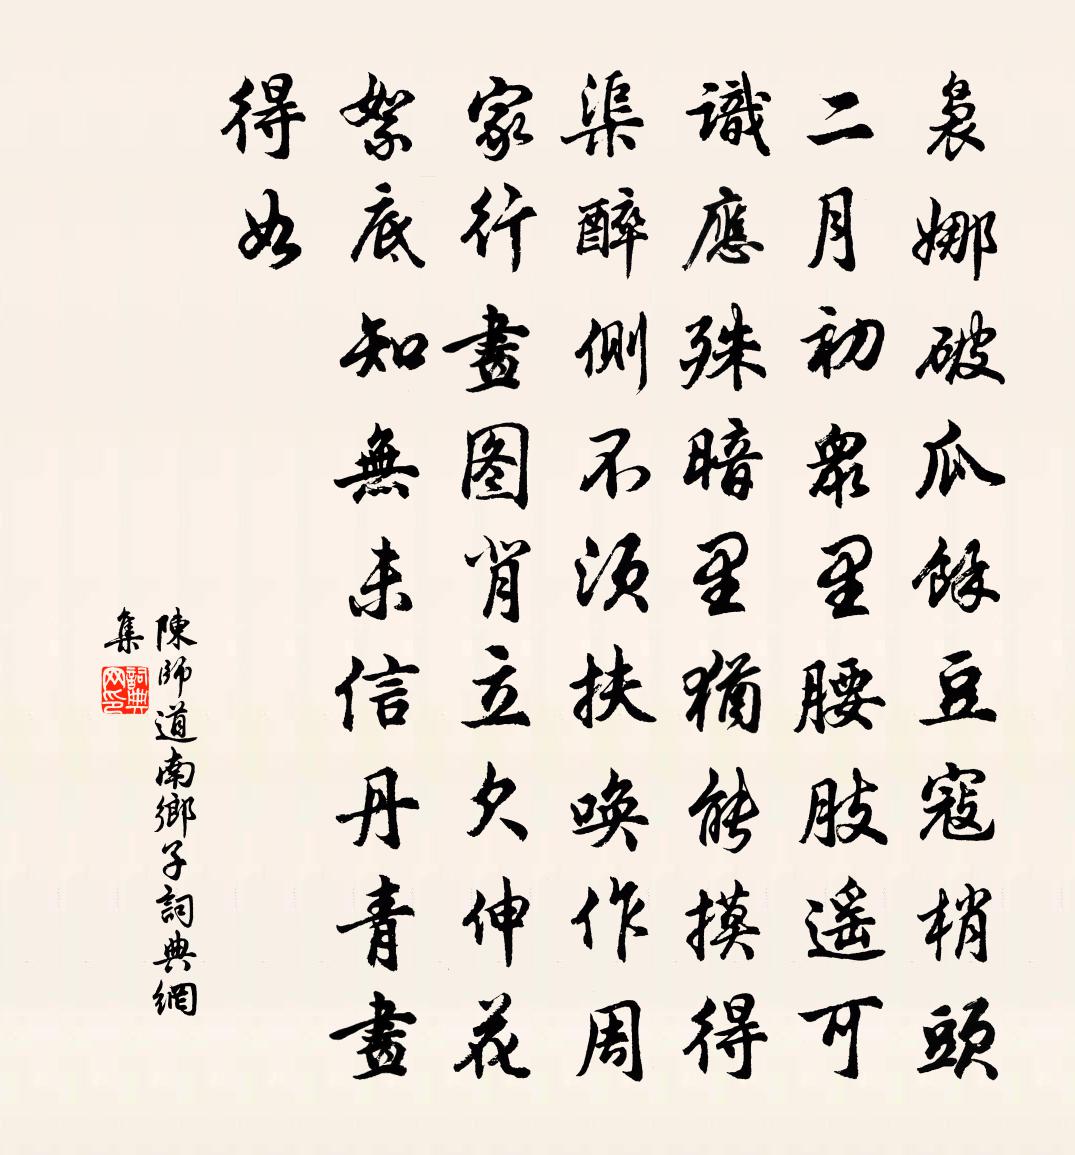 裊娜破瓜餘豆寇梢頭
二月初衆里腰肢遥可
識應殊暗里猶能摸得
渠醉側不須扶喚作周
家行畫图肖立欠伸花
絮底知無未信丹青畫
得如
陳師道南鄉子詞典網
集
詞典网印